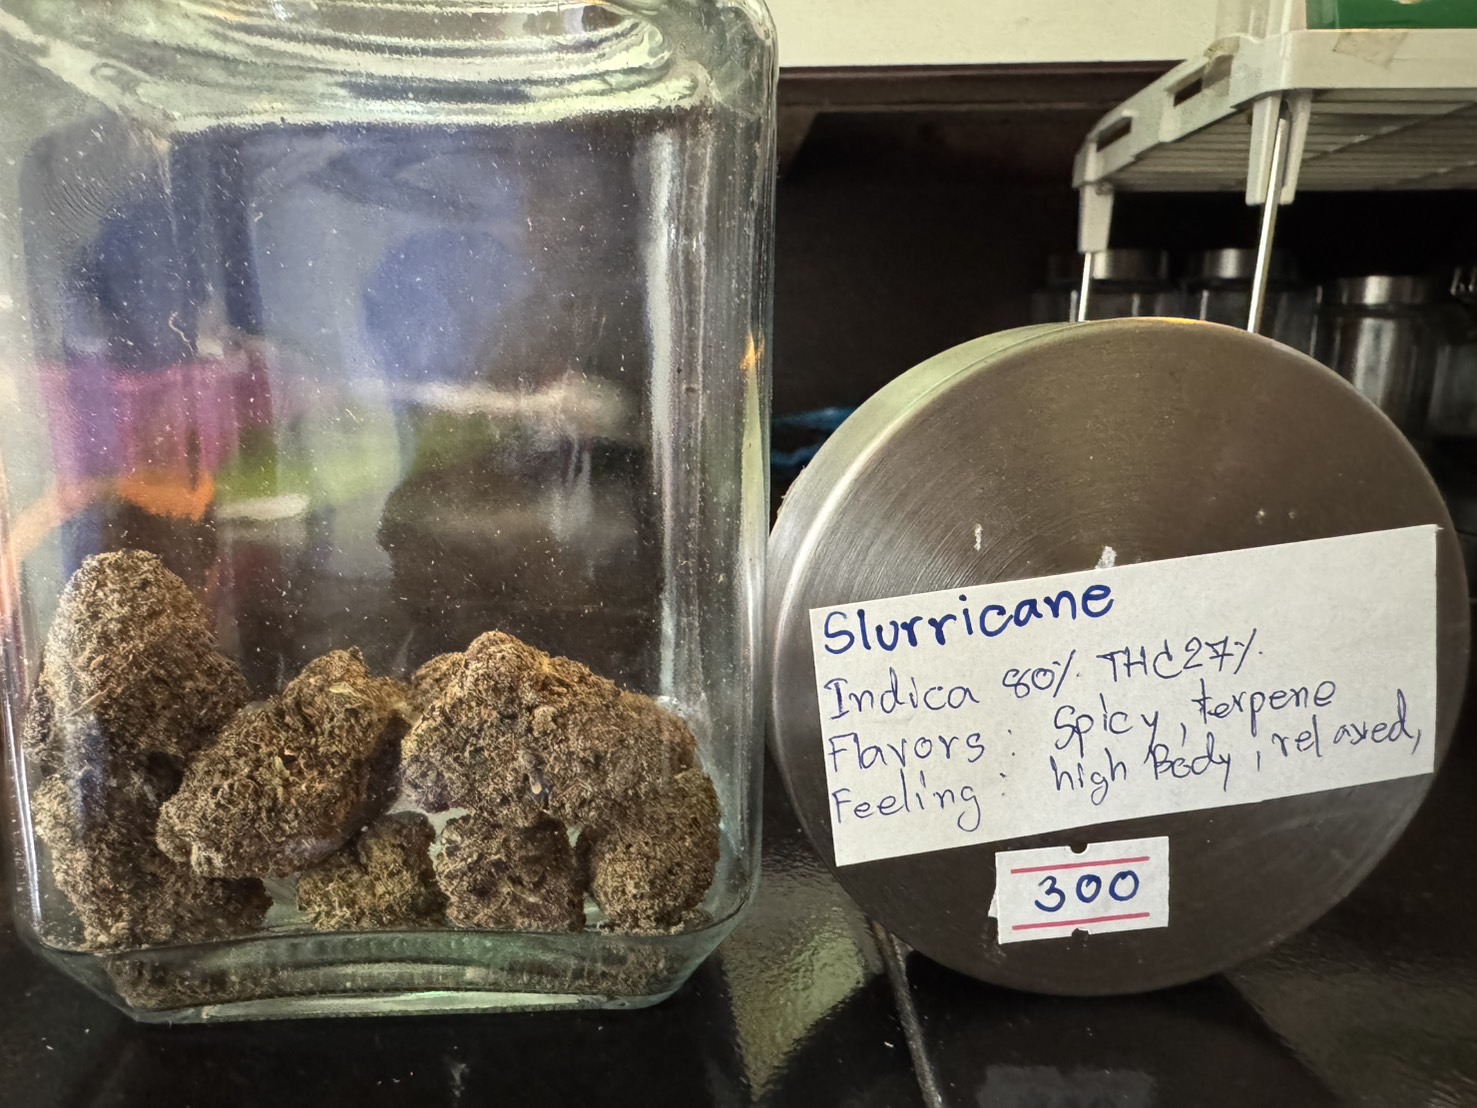 Slurricane
Indica 80% THC27%
Flavors : Spicy, terpene
Feeling : high Body, relaxed,
300